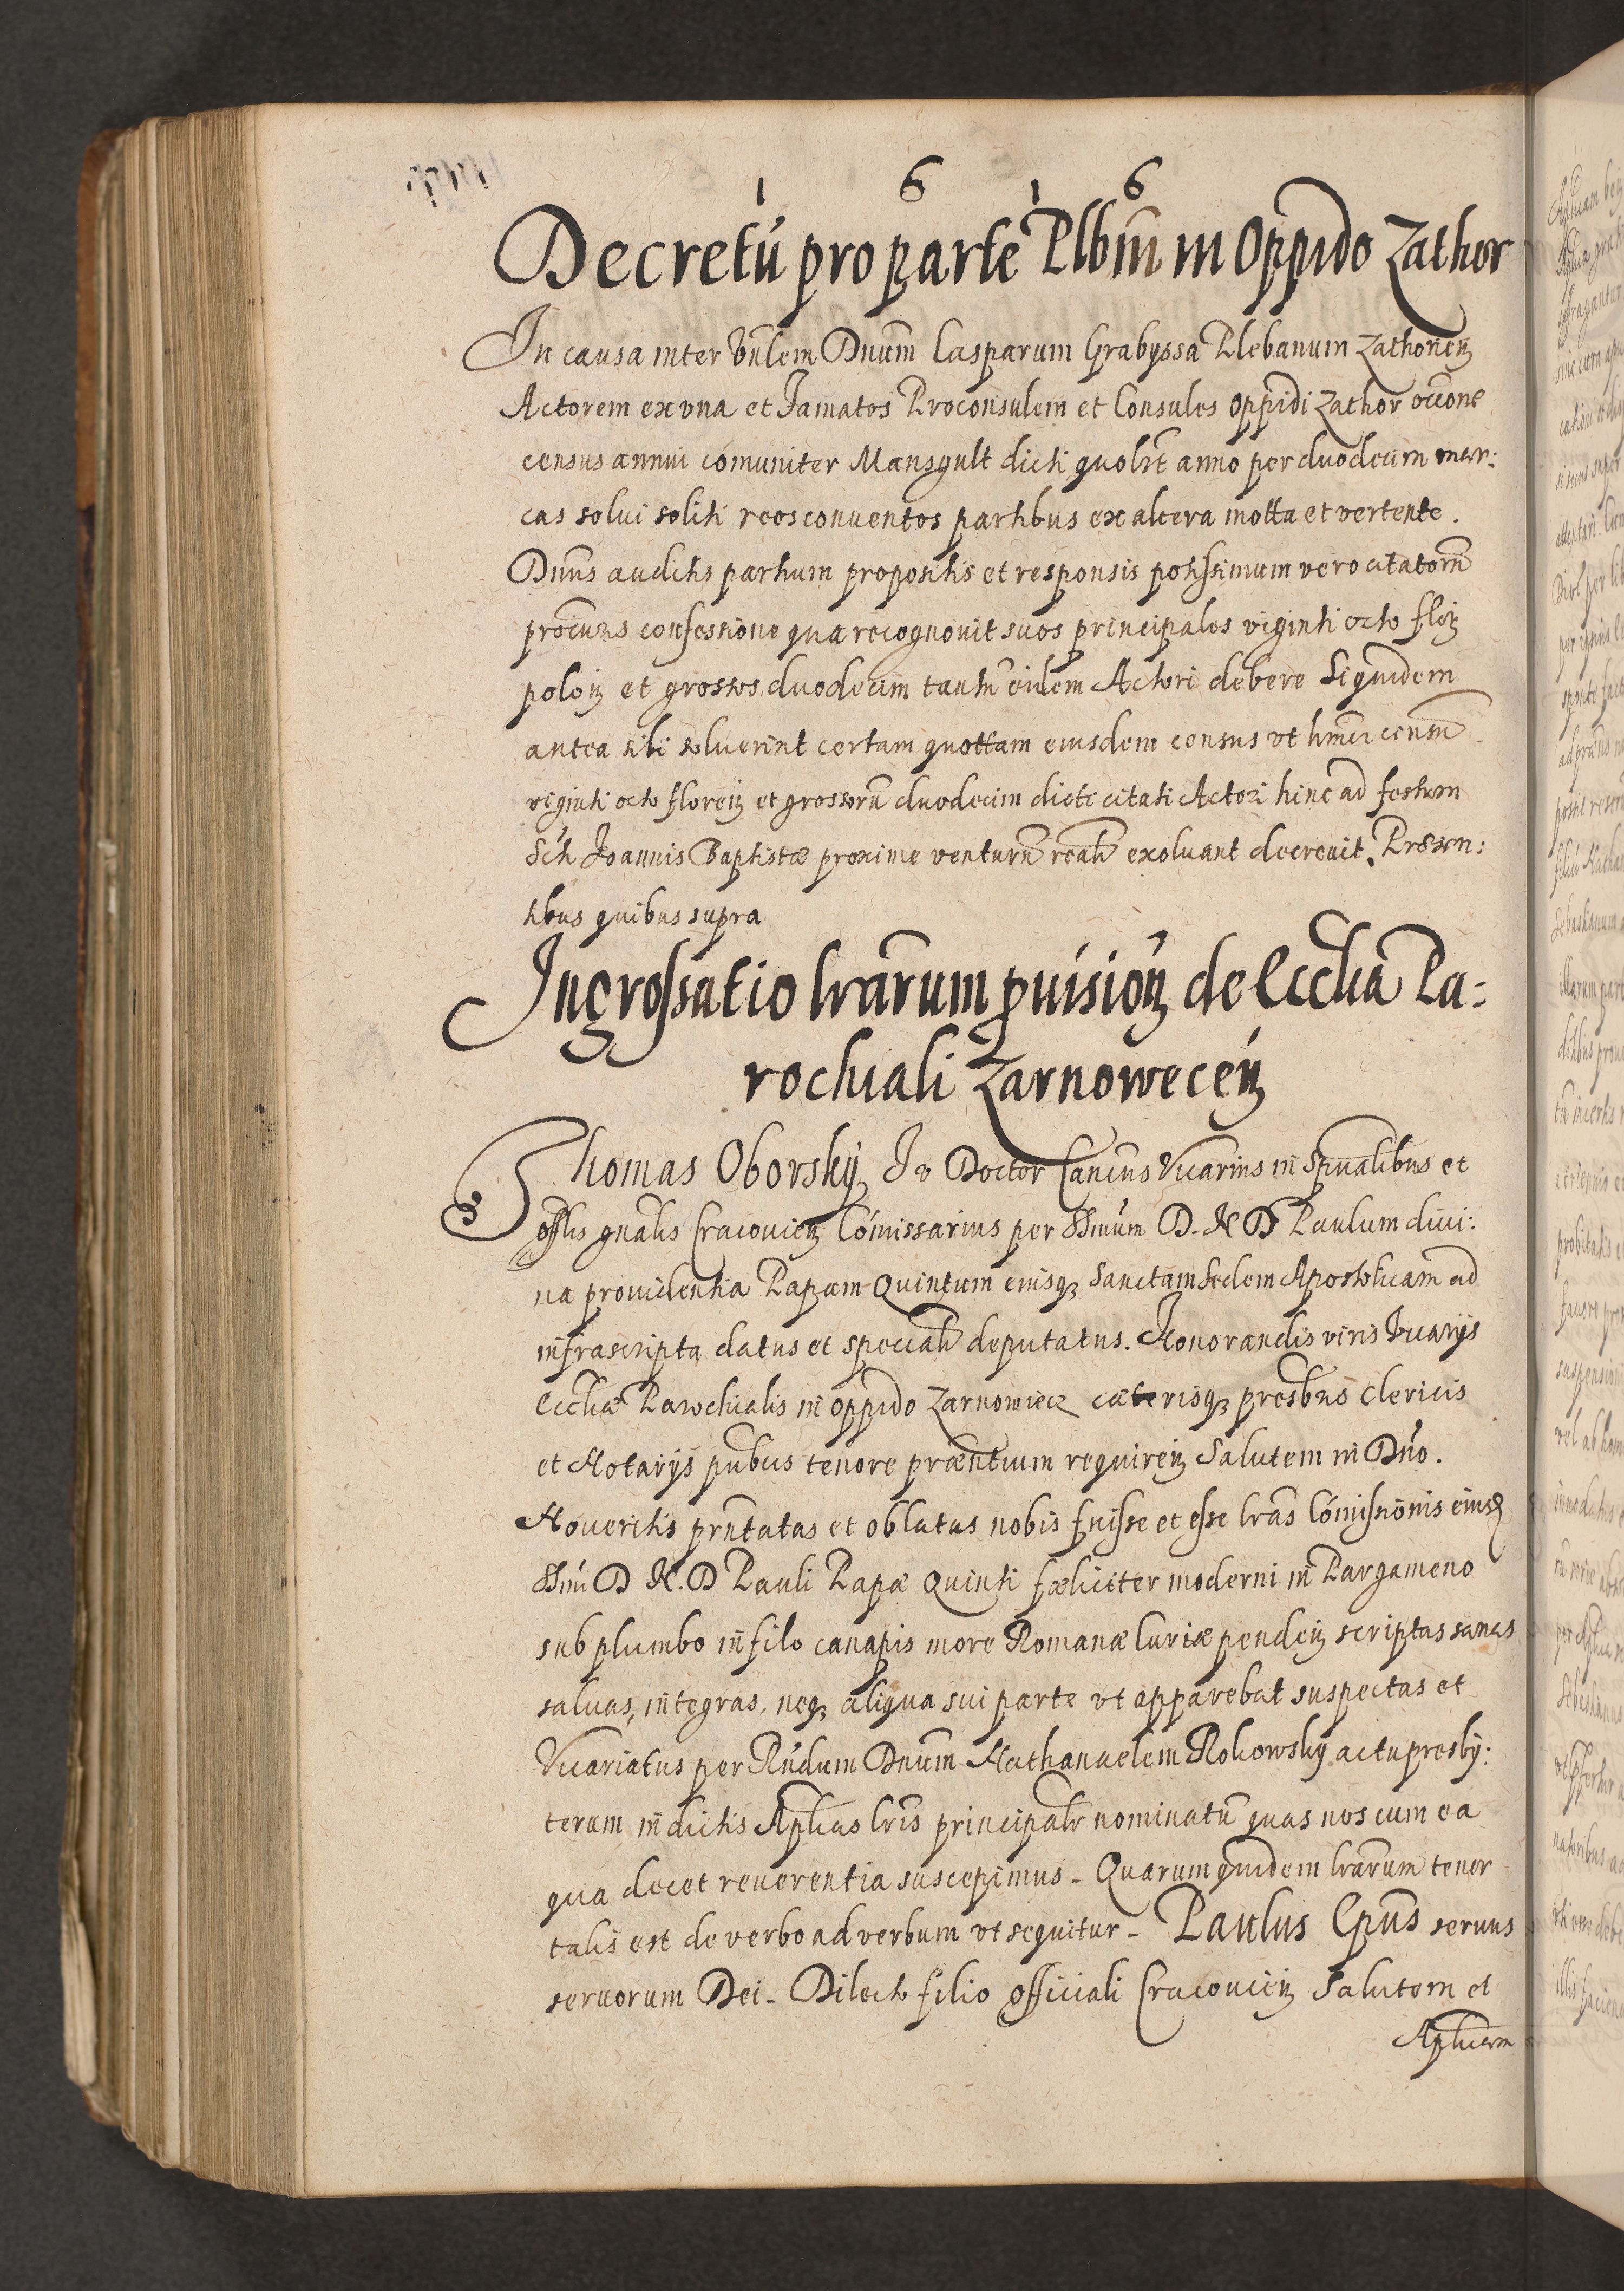 1 6 1 6
Decretū pro parte Plbm̄ in Oppido Zathor
In causa inter Vn̄lem Dnūm Casparum Grabyssa Plebanum Zathorien̄
Actorem ex vna et Famatos Proconsulem et Consules Oppidi Zathor occōne
census annui com̄uniter Mansgult dicti quolt̄ anno per duodecim mar:
cas solui soliti reos conuentos partibus ex altera motta et vertente.
Dnūs auditis partium propositis et responsis potissimum vero citatorū
procūris confessione qua recognouit suos principales viginti octo flor̄
polon̄ et grossos duodecim tantū eidem Actori debere Siquidem
antea sibi soluerint certam quottam eiusdem census vt hm̄oi censū
viginti octo floren̄ et grossorū duodecim dicti citati Actori hinc ad festum
Sc̄ti Joannis Baptistæ proxime venturū realr̄ exoluant decreuit. Præsen:
tibus quibus supra
Ingrossatio lrārum p̄uision̄ de Eccl̄ia Pa:
rochiali Zarnowecen̄
Thomas Oborsky J V Doctor Canc̄us Vicarius in Spūalibus et
offlis gnālis Cracouien̄ Com̄issarius per SSmūm D. N D Paulum diui:
na prouidentia Papam Quintum eiusq3 Sanctam Sedem Apostolicam ad
infrascripta datus et specialr̄ deputatus. Honorandis viris Vicarijs
Eccl̄iæ Parochialis in oppido Zarnowiecz cæterisq3 presb̄ris Clericis
et Notarijs pub̄cis tenore præn̄tium requiren̄ Salutem in Dn̄o.
Noueritis prn̄tatas et oblatas nobis fuisse et esse lrās Com̄issionis eiusd̄
SSmi D N. D Pauli Papæ Quinti fæliciter moderni in Pargameno
sub plumbo in filo canapis more Romanæ Curiæ penden̄ scriptas sanas
saluas, integras, neq3 aliqua sui parte vt apparebat suspectas et
Vicariatus per Rn̄dum Dnūm Nathanaelem Rokowsky actu presby:
terum in dictis Apl̄icis lrīs principalr̄ nominatū quas nos cum ea
qua decet reuerentia suscepimus. Quarum quidem lrārum tenor
talis est de verbo ad verbum vt sequitur. Paulus Ep̄us seruus
seruorum Dei. Dilecto filio Officiali Cracouien̄ Salutem et
Apl̄icam